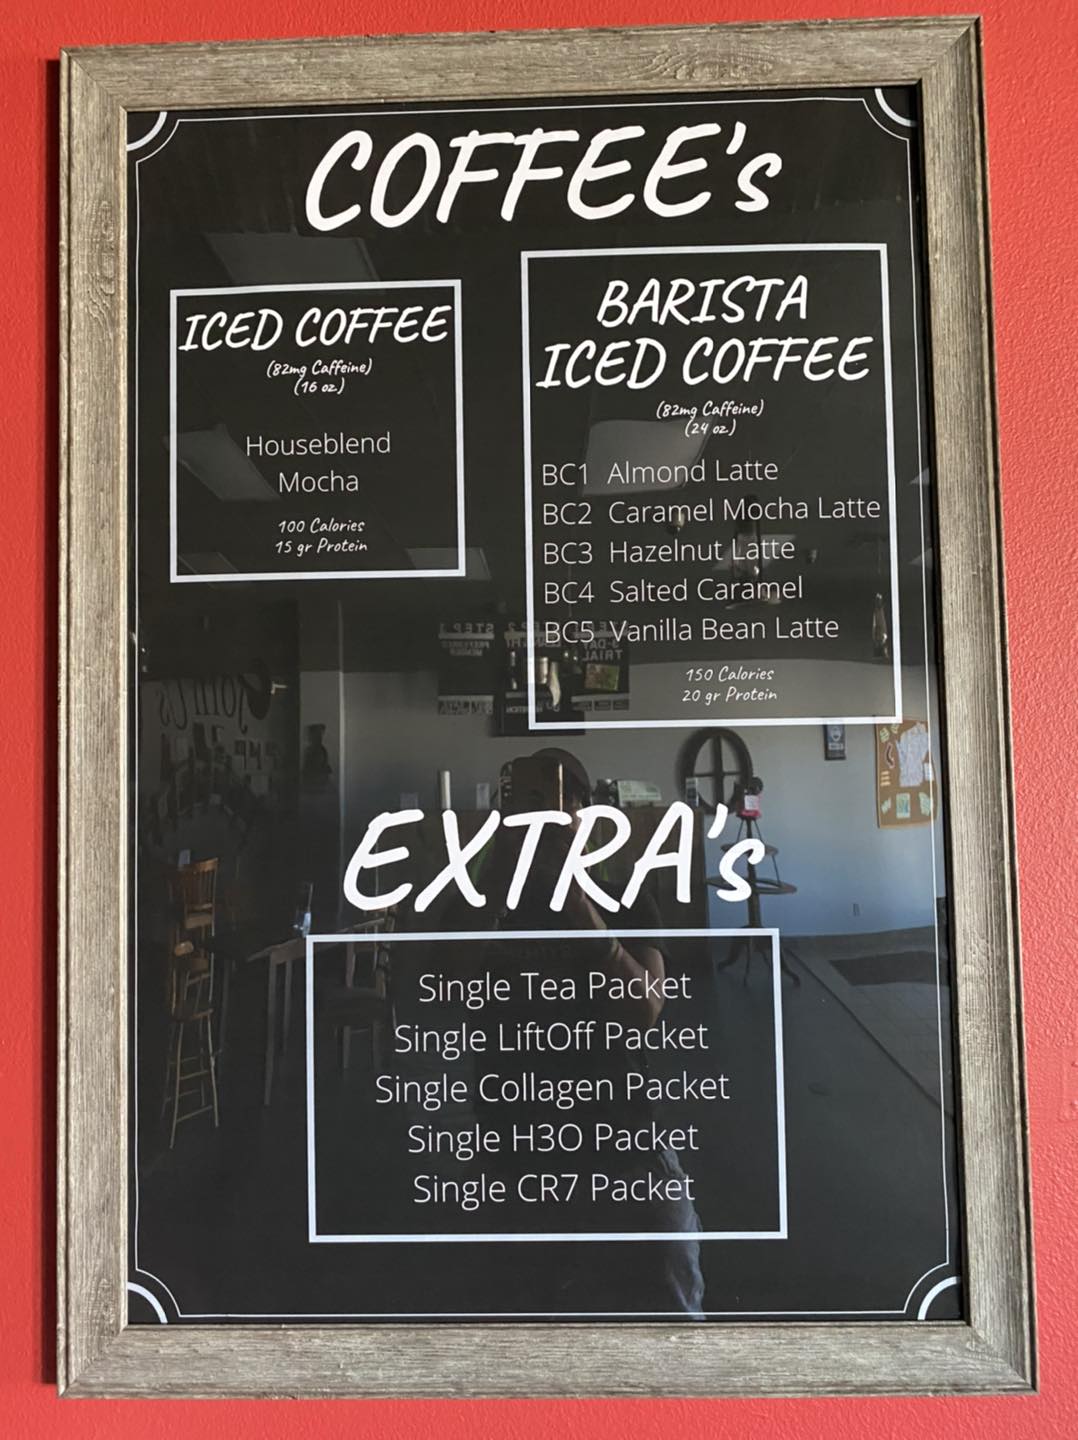 COFFEE's
ICED COFFEE
(82mg Caffeine)
(16 oz.)
Houseblend
Mocha
100 Calories
15 gr Protein
BARISTA
ICED COFFEE
(82mg Caffeine)
(24 oz.)
BC1 Almond Latte
BC2 Caramel Mocha Latte
BC3 Hazelnut Latte
BC4 Salted Caramel
BC5 Vanilla Bean Latte
150 Calories
20 gr Protein
EXTRA's
Single Tea Packet
Single LiftOff Packet
Single Collagen Packet
Single H3O Packet
Single CR7 Packet